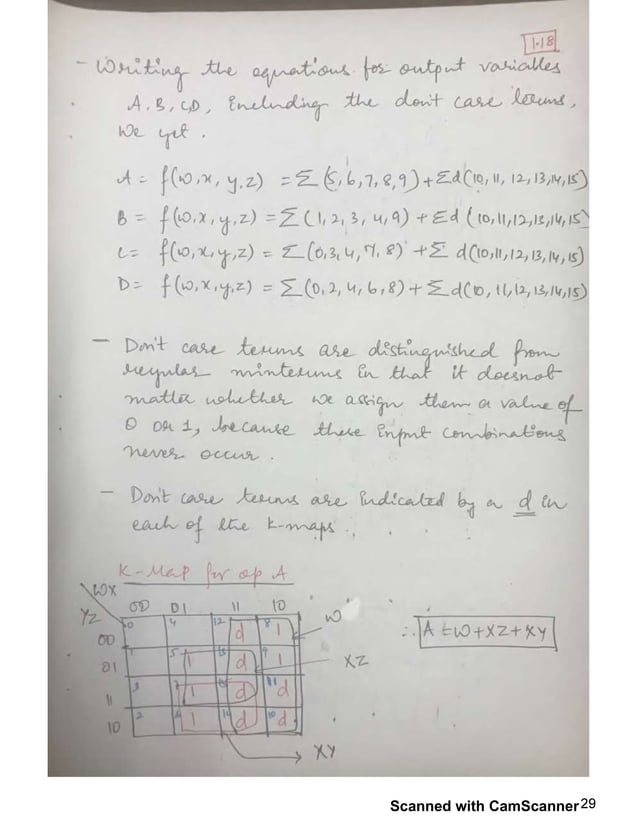 1.18
- Writing the equations for output variables
A, B, C, D, Including the don't care terms,
We get.
A = f(w,x,y,z) = Σ (5,6,7,8,9) + Σd(10,11,12,13,14,15)
B = f(w,x,y,z) = Σ(1,2,3,4,9) + Σd (10,11,12,13,14,15)
C = f(w,x,y,z) = Σ(0,3,4,7,8) + Σ d(10,11,12,13,14,15)
D = f(w,x,y,z) = Σ(0,2,4,6,8) + Σd(10,11,12,13,14,15)
- Don't care terms are distinguished from
regular minterms in that it doesnot
matter whether we assign them a value of
0 or 1, because these Input combinations
never occur.
- Don't care terms are Indicated by a d in
each of the K-maps.
K-Map for op A
WX
YZ 00 01 11 10 W
00 0 4 12 d 8 1 ∴ A = W+XZ+XY
01 1 5 1 13 d 9 1 XZ
11 3 7 1 15 d 11 d
10 2 6 1 14 d 10 d
XY
Scanned with CamScanner29